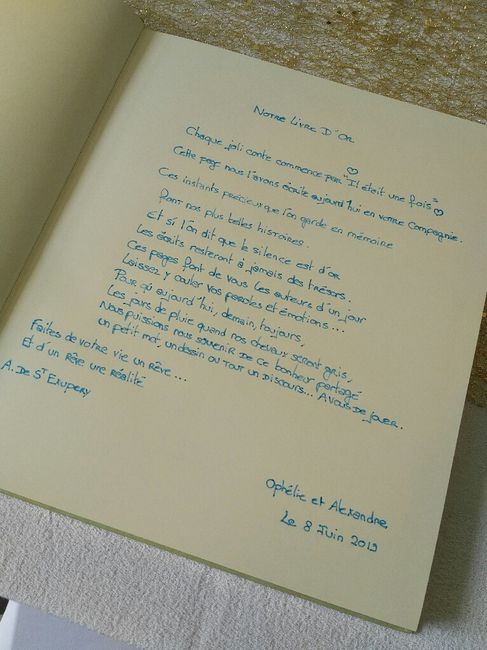 Notre Livre D'Or
Chaque joli conte commence par "Il était une fois"
Cette page nous l'avons écrite aujourd'hui en votre Compagnie.
Ces instants précieux que l'on garde en mémoire
Font nos plus belles histoires.
Et si l'on dit que le silence est d'or
Les écrits resteront à jamais des trésors.
Ces pages font de vous les auteurs d'un jour
Laissez y couler vos paroles et émotions...
Pour qu'aujourd'hui, demain, toujours,
Les jours de pluie quand nos cheveux seront gris,
Nous puissions nous souvenir de ce bonheur partagé
un petit mot, un dessin ou tout un discours... A vous de jouer.
Faites de votre vie un rêve...
Et d'un rêve une réalité
A. De St Exupery
Ophélie et Alexandre
Le 8 Juin 2019